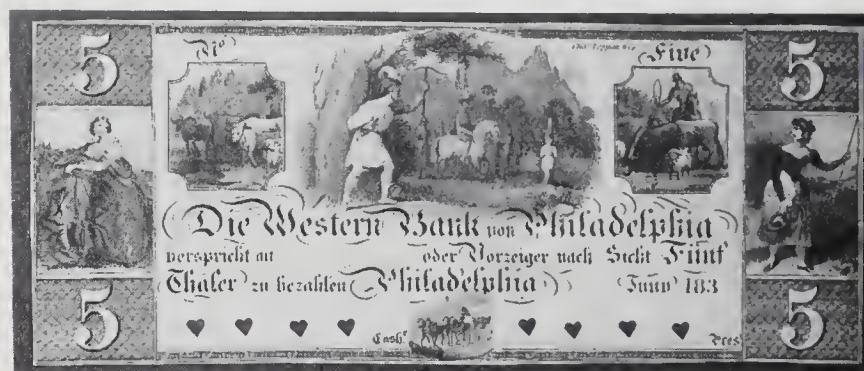 5 5
Five
Die Western Bank von Philadelphia
verspricht an oder Vorzeiger nach Sicht Fünf
Thaler zu bezahlen Philadelphia Juny 183
Cash.r Pres
5 5